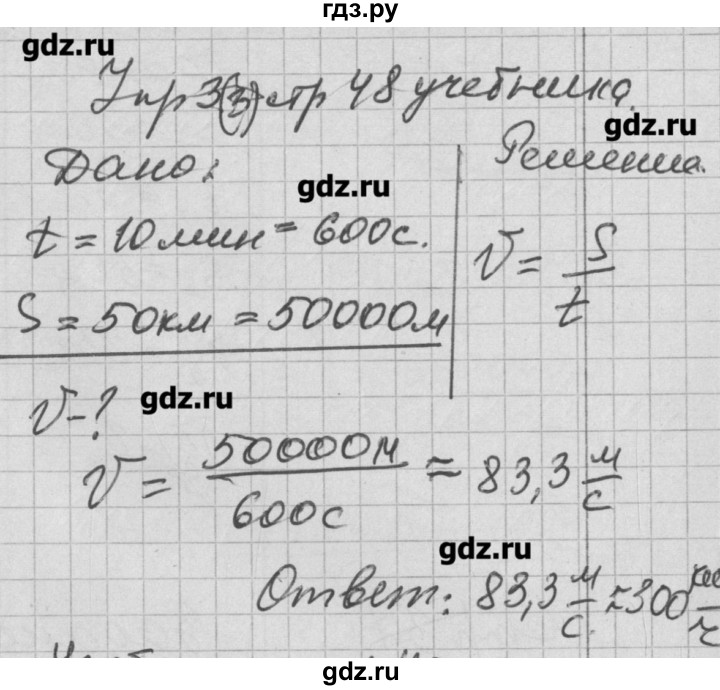 гдз.ру
gdz.ru
Упр 3(3) стр 48 учебника.
gdz.ru
Дано:
Решение.
gdz.ru
t = 10 мин = 600 с.
V = S/t
S = 50 км = 50000 м
V - ?
gdz.ru
V = 50000 м / 600 с ≈ 83,3 м/с
gdz.ru
Ответ: 83,3 м/с. ≈ 300 км/ч
gdz.ru